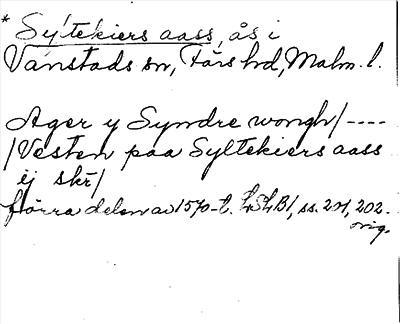 * Syltekiers aass, ås i
Vanstads sn, Färs hd, Malm. l.
Ager y Syndre wongh/ ----
/Vesten paa Syltekiers aass
ej skr/
förra delen av 1570-t. LSLB1, ss. 201, 202.
orig.